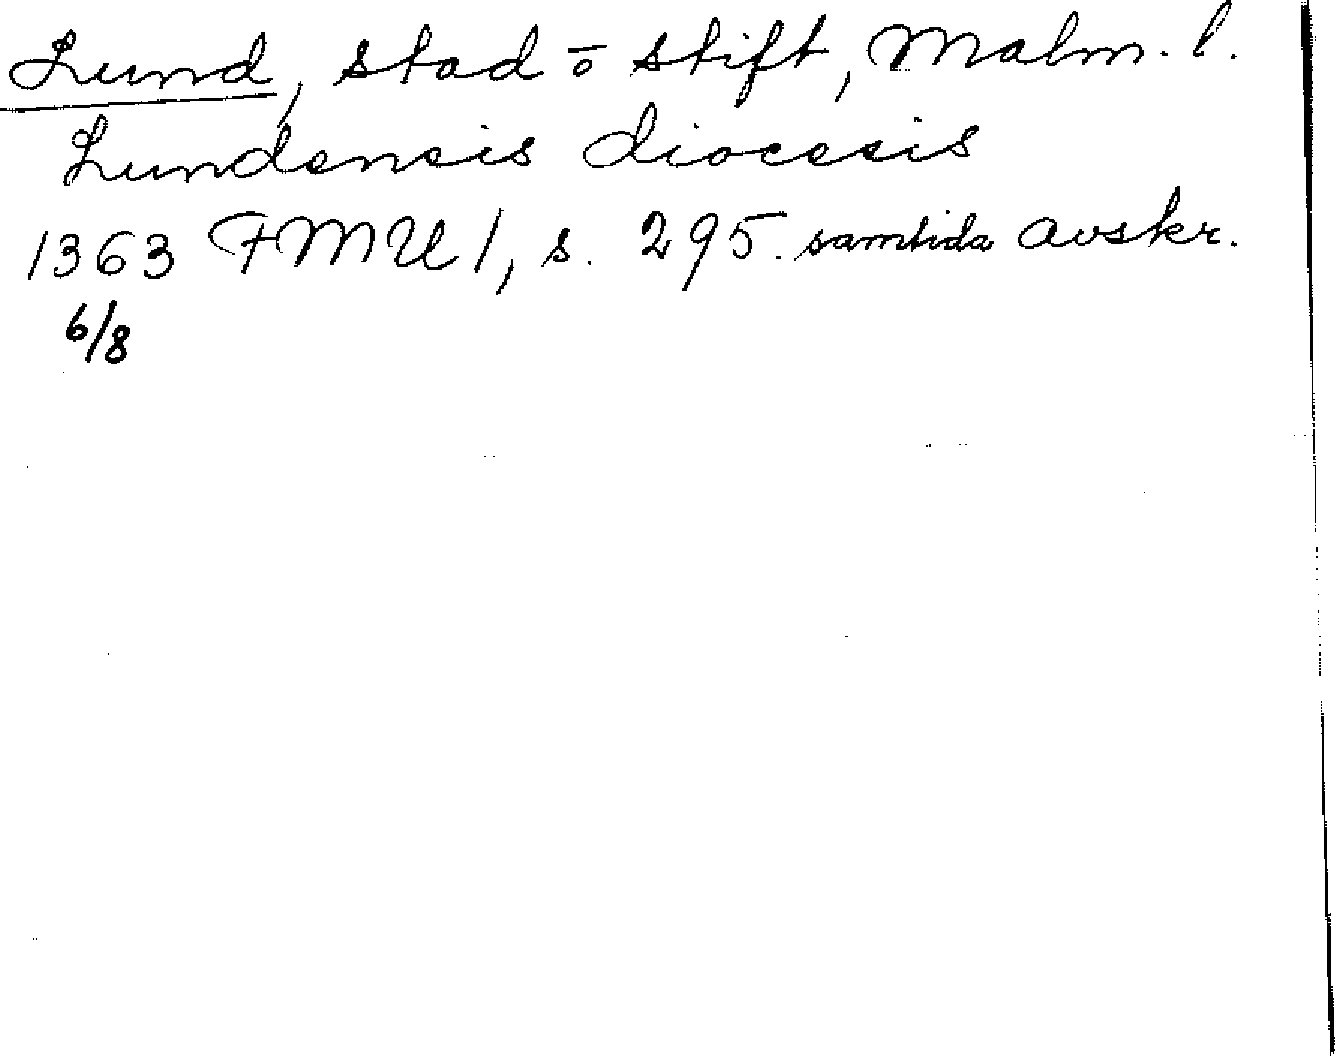 Lund, stad o stift, Malm. l.
Lundensis diocesis
1363 FMU 1, s. 295. samtida avskr.
6/8